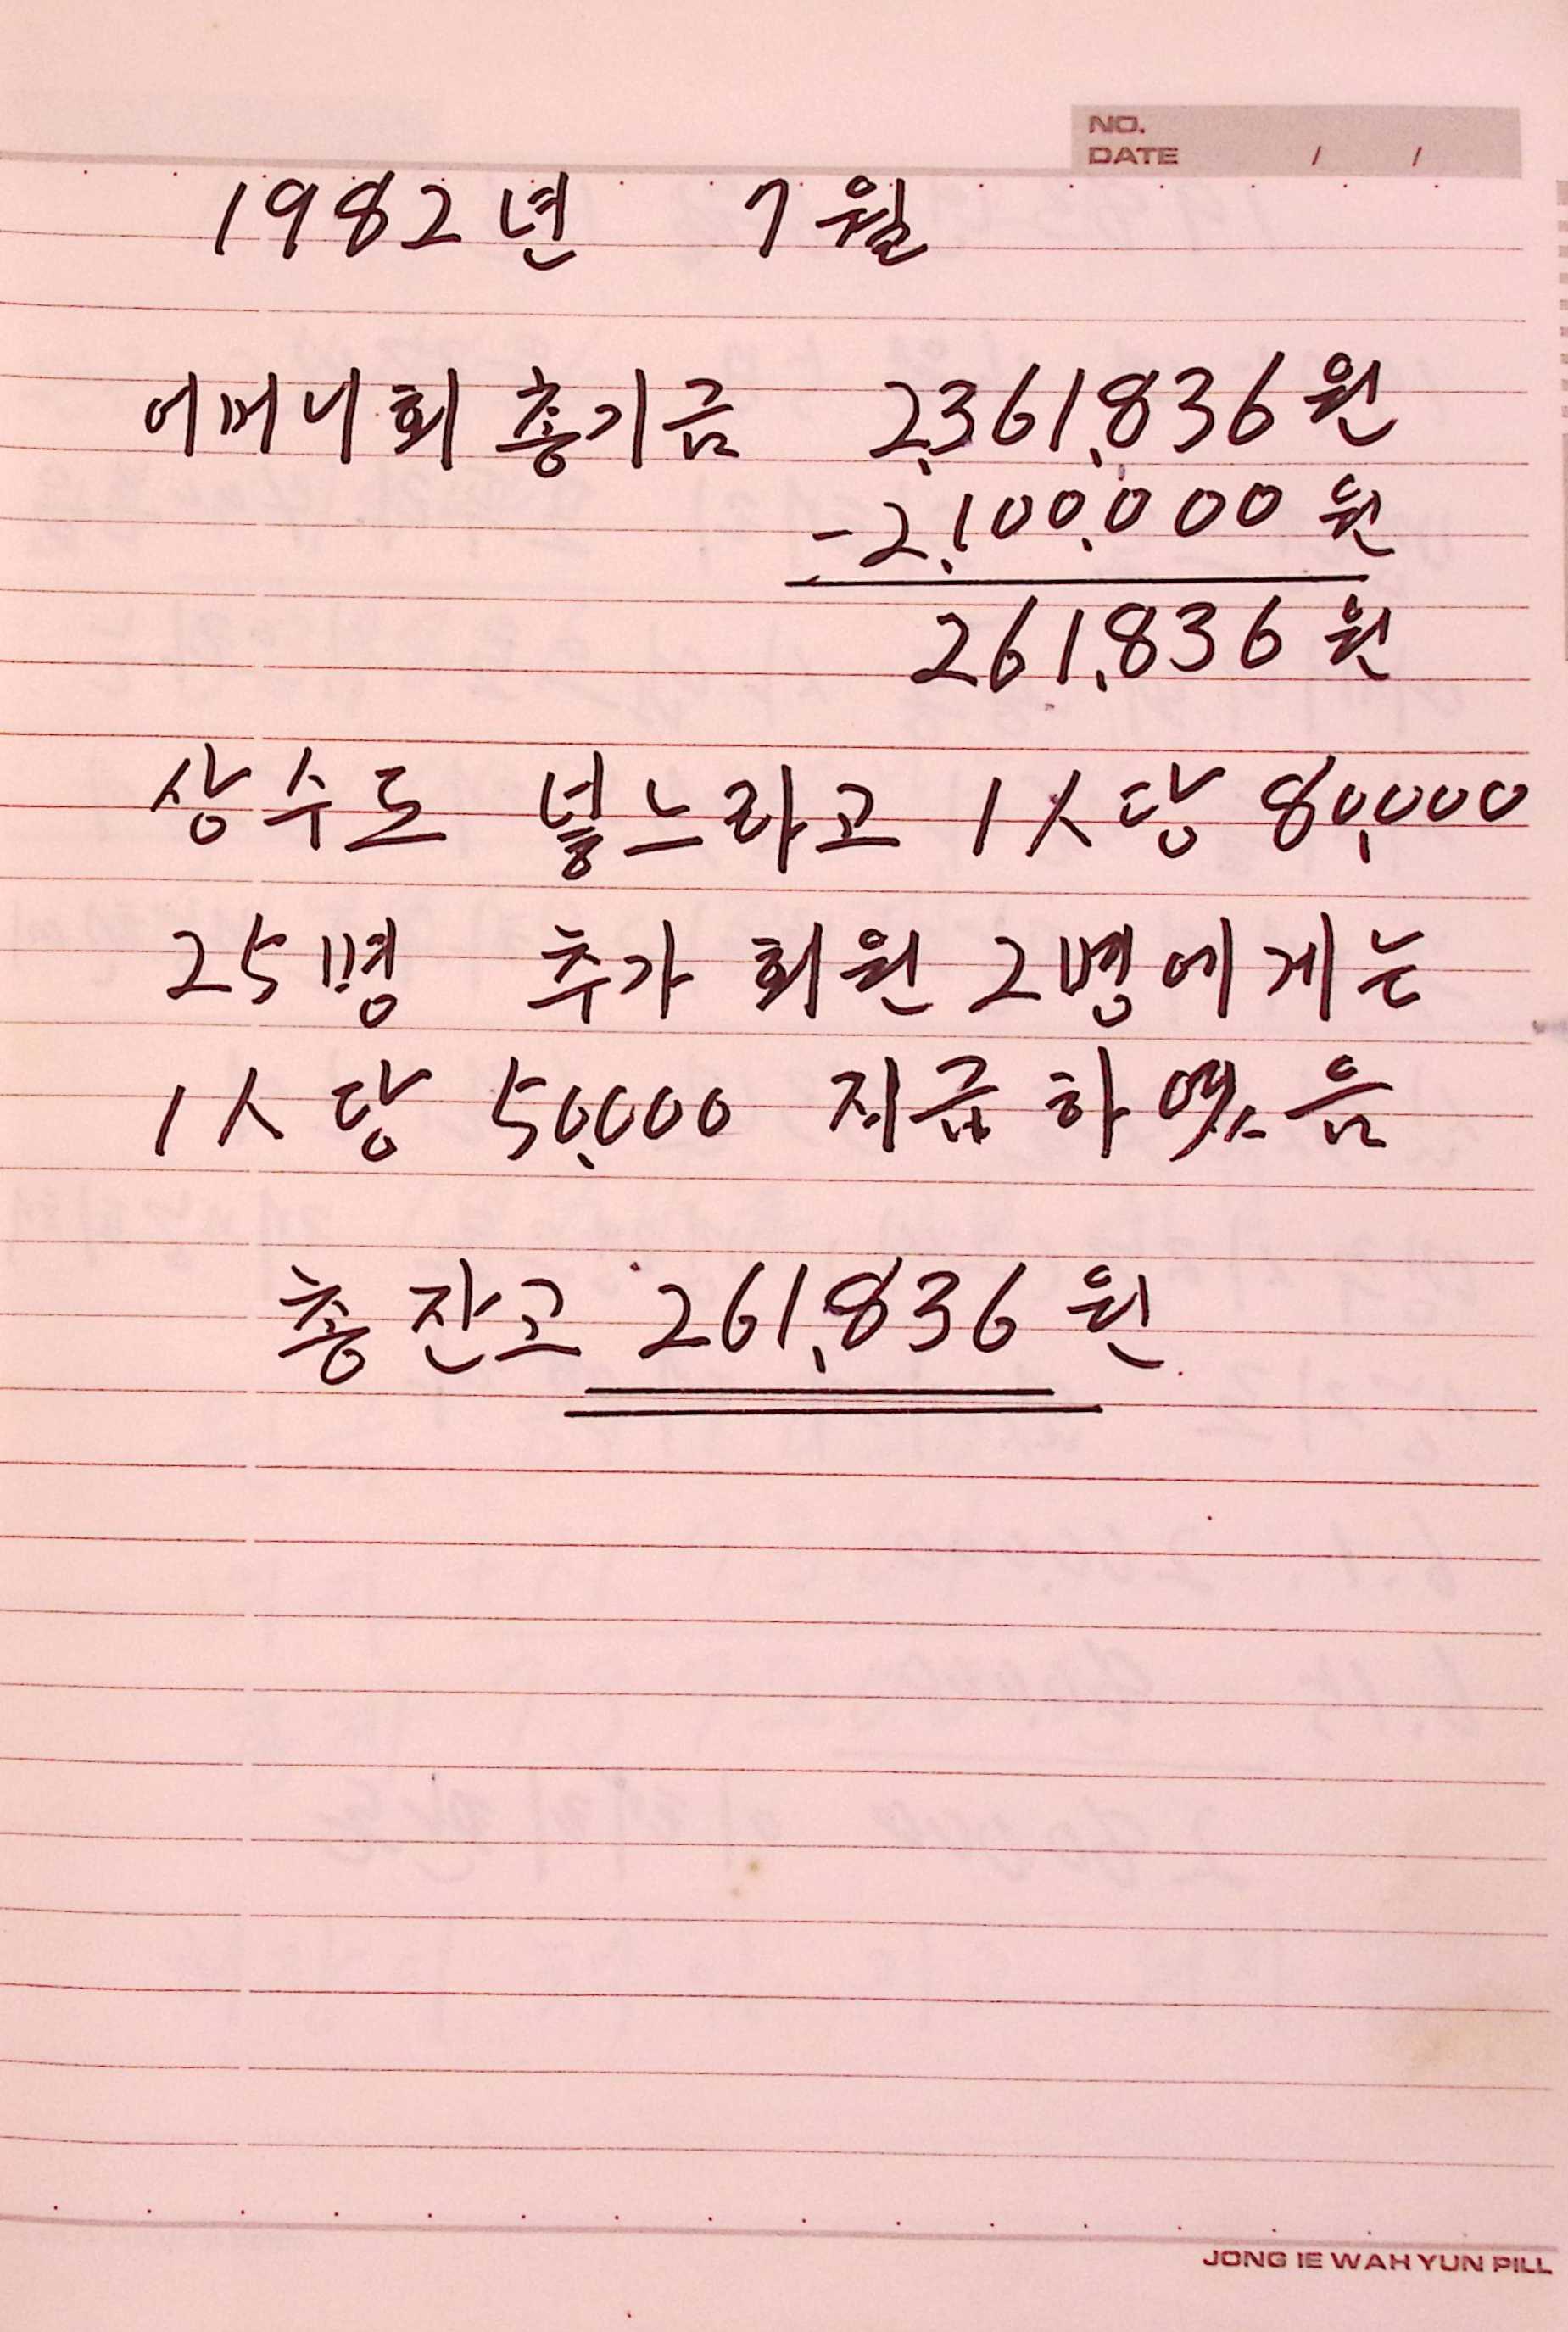 NO.
DATE / /
1982년 7월
어머니회 총기금 2,361,836원
-2,100,000원
261,836원
상수도 넣느라고 1人당 80,000
25명 추가 회원 2명에게는
1人당 50,000 지급하였음
총 잔고 261,836원
JONG IE WAH YUN PILL